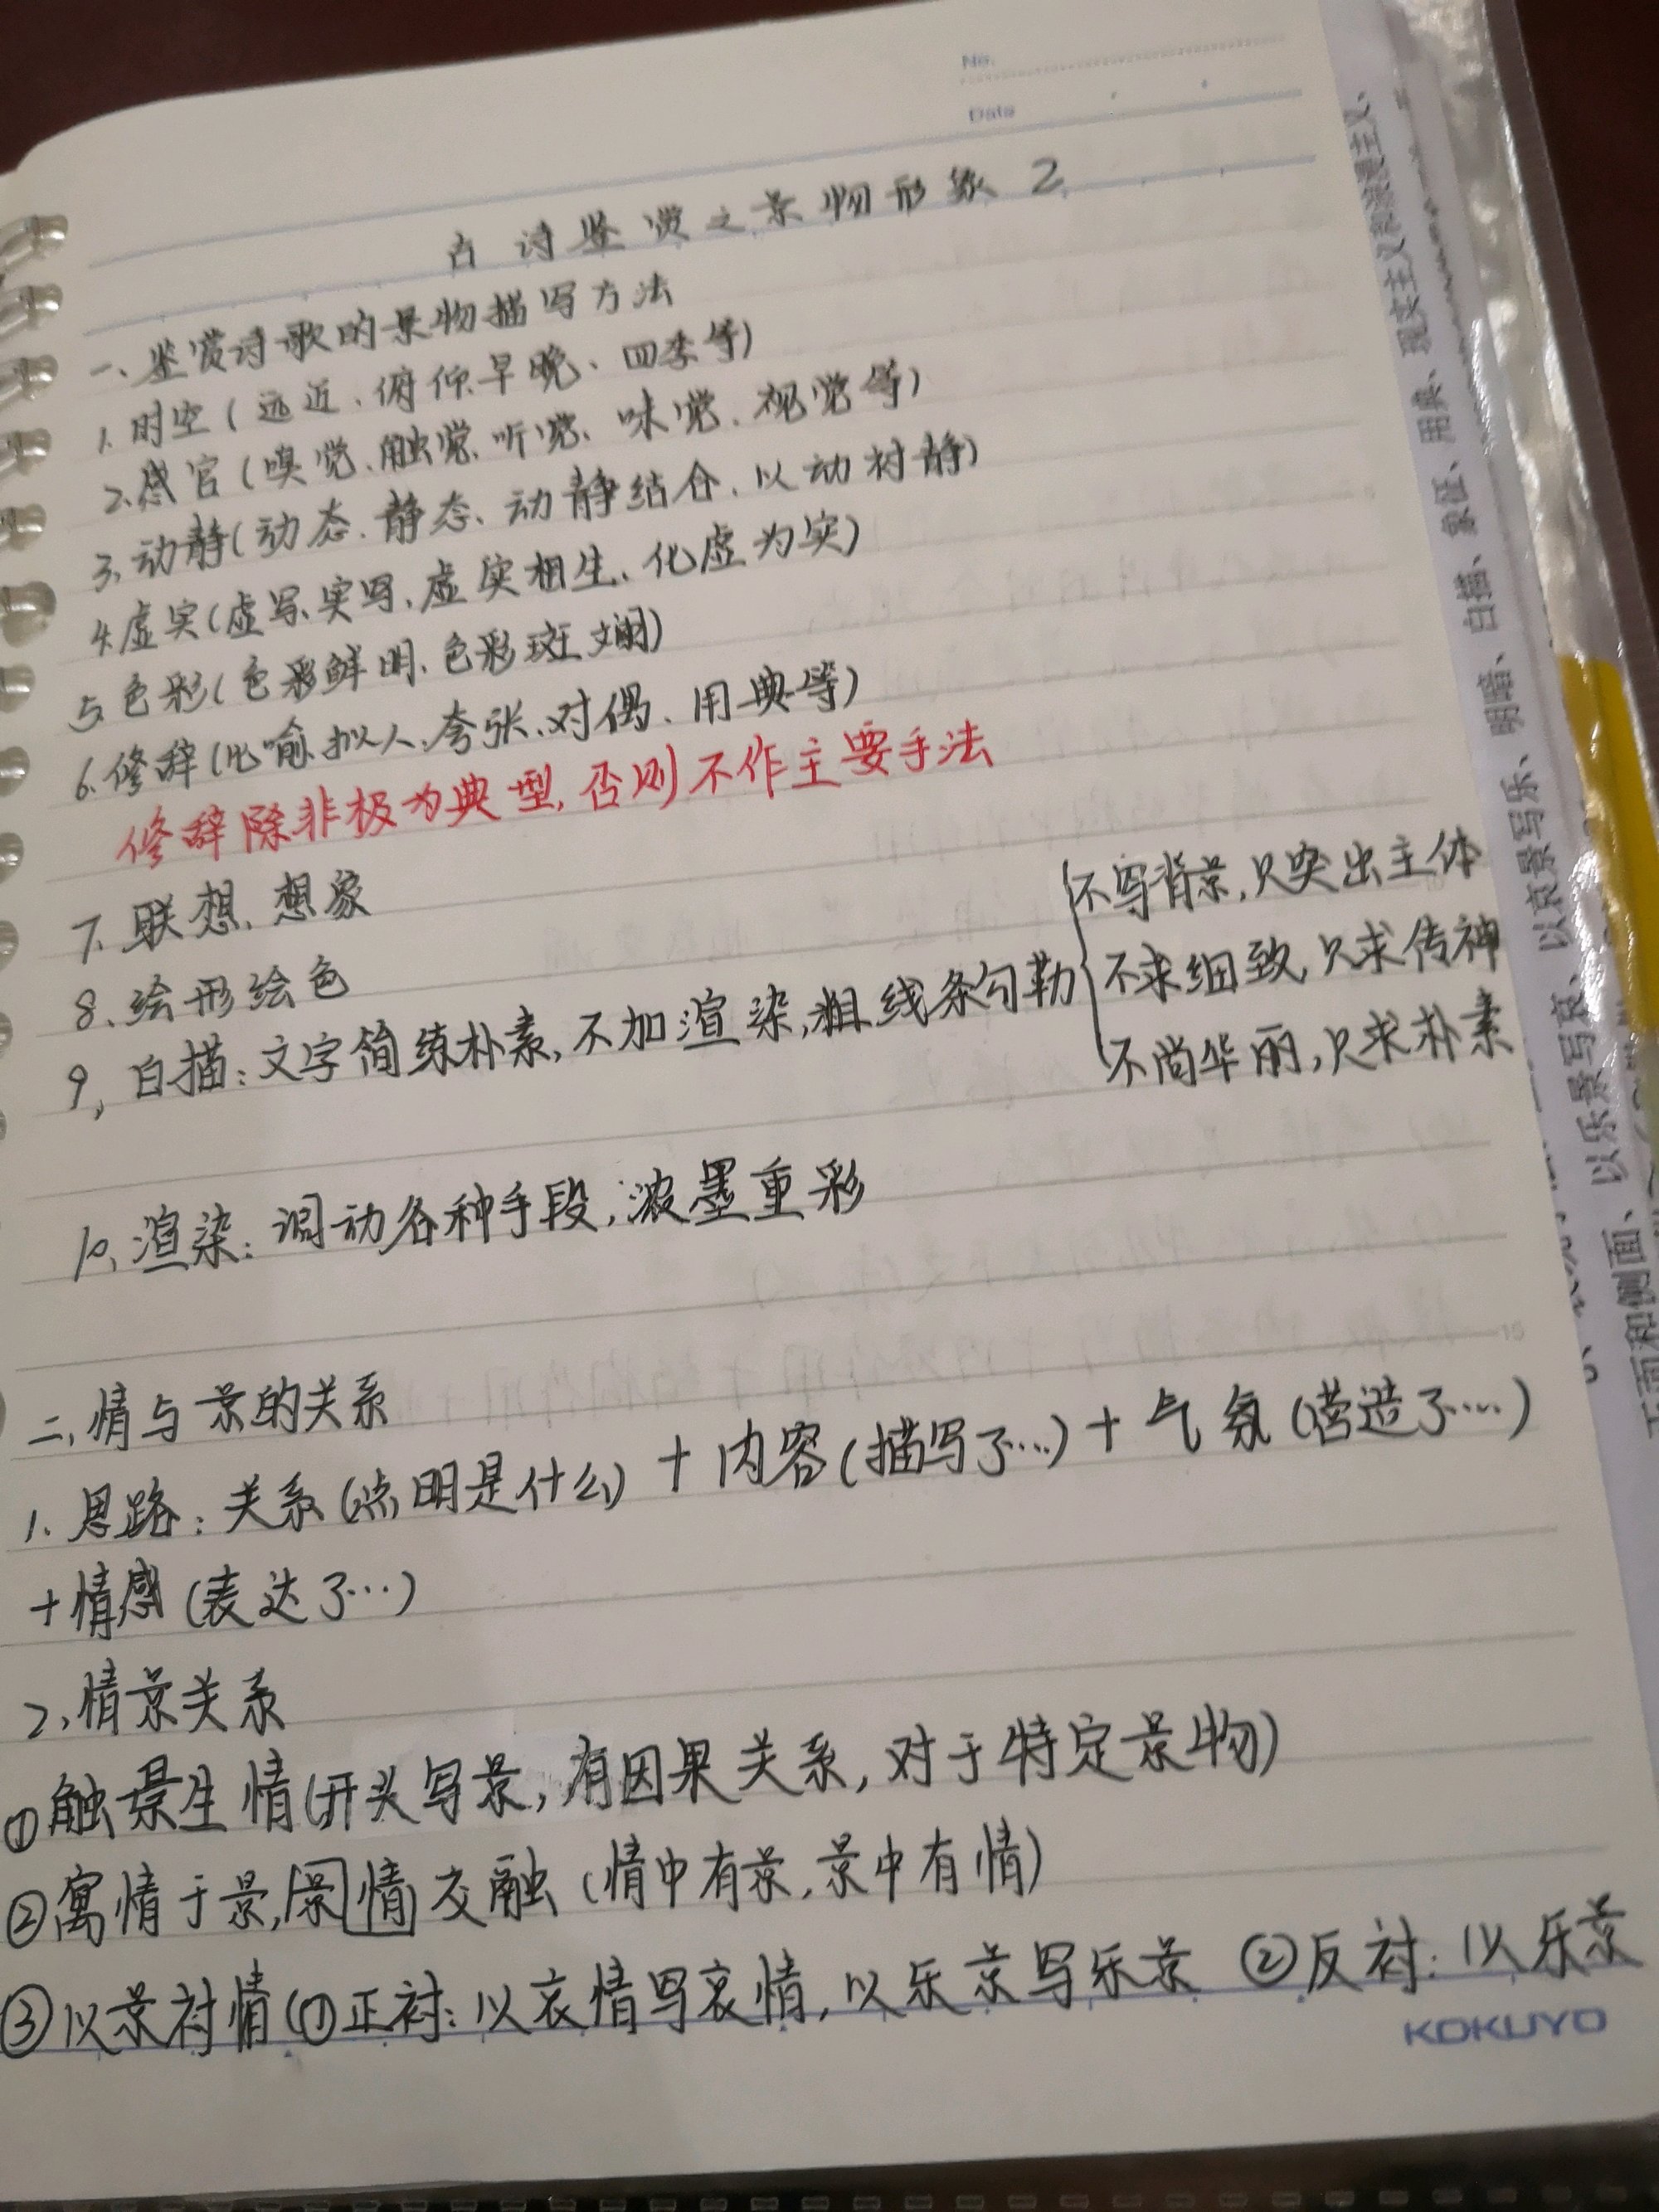 No.
Date
古诗鉴赏之景物形象 2
一、鉴赏诗歌的景物描写方法
1、时空(远近、俯仰、早晚、四季等)
2、感官(嗅觉、触觉、听觉、味觉、视觉等)
3、动静(动态、静态、动静结合、以动衬静)
4、虚实(虚写、实写、虚实相生、化虚为实)
5、色彩(色彩鲜明、色彩斑斓)
6、修辞(比喻、拟人、夸张、对偶、用典等)
修辞除非极为典型,否则不作主要手法
7、联想、想象
8、绘形绘色
9、白描:文字简练朴素,不加渲染,粗线条勾勒
不写背景,只突出主体
不求细致,只求传神
不尚华丽,只求朴素
10、渲染:调动各种手段,浓墨重彩
15
二、情与景的关系
1、思路:关系(点明是什么)+内容(描写了…)+气氛(营造了…)
+情感(表达了…)
2、情景关系
①触景生情(开头写景,有因果关系,对于特定景物)
②寓情于景,景情交融(情中有景,景中有情)
③以景衬情(①正衬:以哀情写哀情,以乐景写乐景 ②反衬:以乐景
KOKUYO
明暗、白描、象征、用典、现实主义和浪漫主义、
以乐景写哀、以哀景写乐、
正面和侧面、